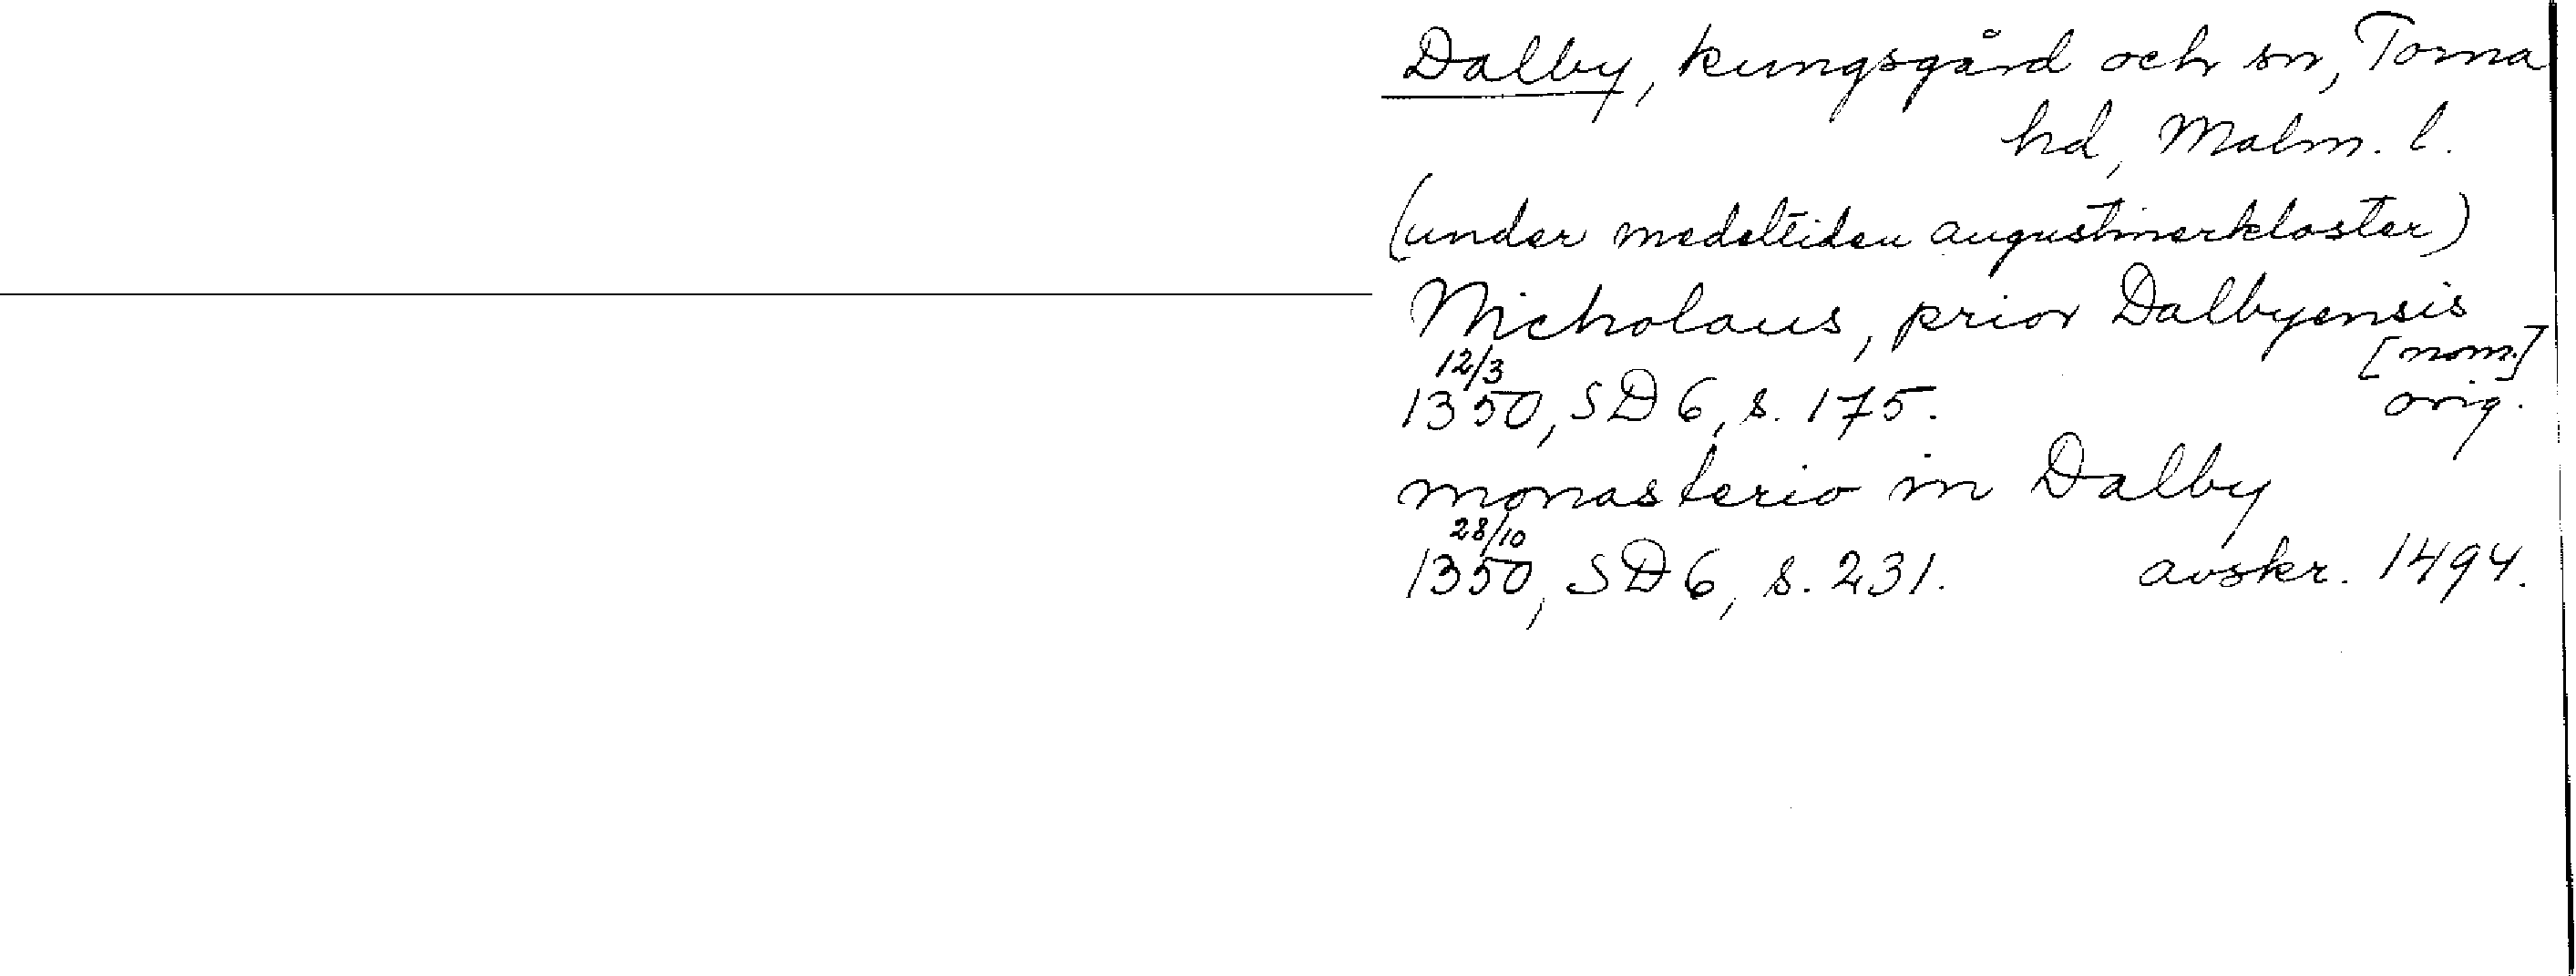 Dalby, kungsgård och sn, Torna
hd, Malm. l.
(under medeltiden augustinerkloster)
Nicholaus, prior Dalbyensis
[nom.]
12/3
1350, SD 6, s. 175. orig.
monasterio in Dalby
28/10
1350, SD 6, s. 231. avskr. 1494.